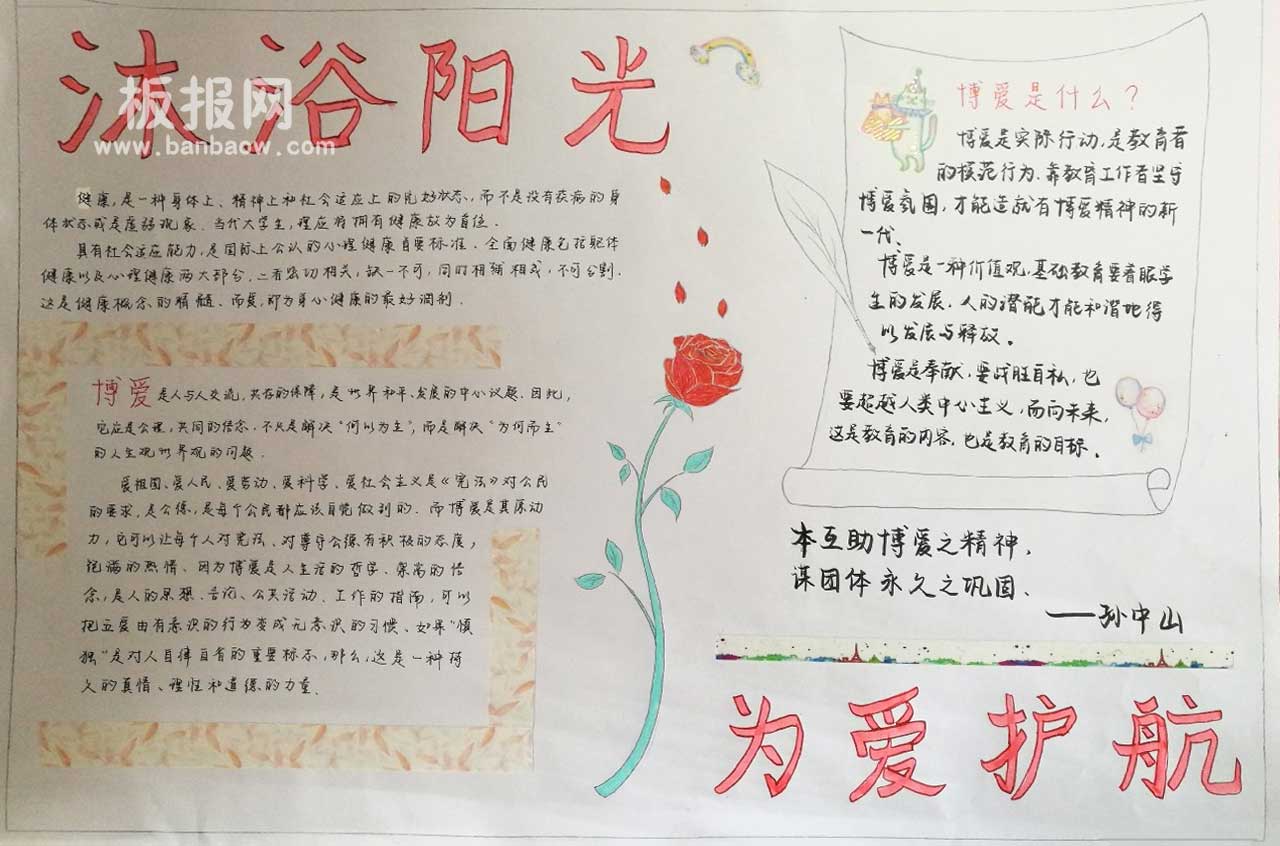 沐浴阳光
板报网
www.banbaow.com
健康,是一种身体上、精神上和社会适应上的良好状态,而不是没有疾病的身
体状态或是虚弱现象。当代大学生,理应将拥有健康放为首位。
具有社会适应能力,是国际上公认的心理健康首要标准。全面健康包括躯体
健康以及心理健康两大部分,二者密切相关,缺一不可,同时相辅相成,不可分割.
这是健康概念的精髓、而爱,即为身心健康的最好润剂.
博爱是人与人交流,共存的保障,是世界和平、发展的中心议题.因此,
它应是公理,共同的信念,不只是解决“何以为生”,而是解决“为何而生”
的人生观世界观的问题.
爱祖国、爱人民、爱劳动、爱科学、爱社会主义是《宪法》对公民
的要求,是公德,是每个公民都应该自觉做到的.而博爱是其原动
力,它可以让每个人对宪法、对遵守公德有积极的态度,
饱满的热情、因为博爱是人生活的哲学、崇高的信
念,是人的思想、言论、公共活动、工作的指南,可以
把立爱由有意识的行为变成无意识的习惯、如果“慎
独”是对人自律自省的重要标志,那么,这是一种持
久的真情、理性和道德的力量.
博爱是什么?
博爱是实际行动,是教育者
的模范行为.靠教育工作者坚守
博爱氛围,才能造就有博爱精神的新
一代、
博爱是一种价值观,基础教育要着眼学
生的发展.人的潜能才能和谐地得
以发展与释放。
博爱是奉献,要战胜自私,也
要超越人类中心主义,面向未来,
这是教育的内容,也是教育的目标。
本互助博爱之精神,
谋团体永久之巩固、
——孙中山
为爱护航